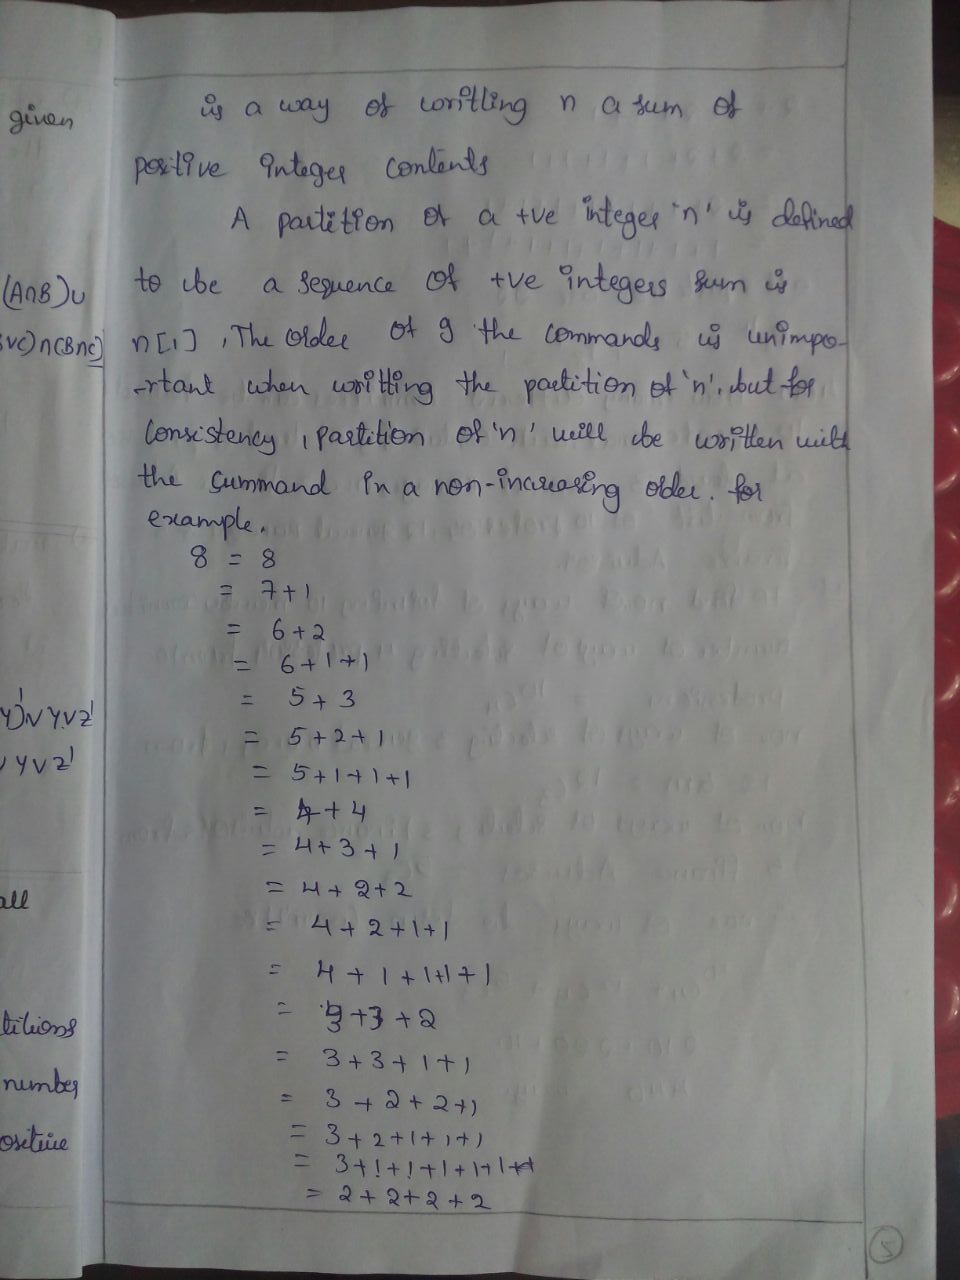 given
(A∩B)∪
∪C)∩(B∩C)
Y)∨Y∨Z'
Y∨Z'
all
titions
number
ositive
is a way of writling n a sum of
positive integer contents
A partition of a +ve integer 'n' is defined
to be a sequence of +ve integers sum is
n[1], The order of g the commands is unimpo-
-rtant when writting the partition of 'n'. but for
Consistency, partition of 'n' will be written with
the summand in a non-increasing order. for
example.
8 = 8
= 7+1
= 6+2
= 6+1+1
= 5+3
= 5+2+1
= 5+1+1+1
= 4+4
= 4+3+1
= 4+2+2
= 4+2+1+1
= 4+1+1+1+1
= 3+3+2
= 3+3+1+1
= 3+2+2+1
= 3+2+1+1+1
= 3+1+1+1+1+1
= 2+2+2+2
5